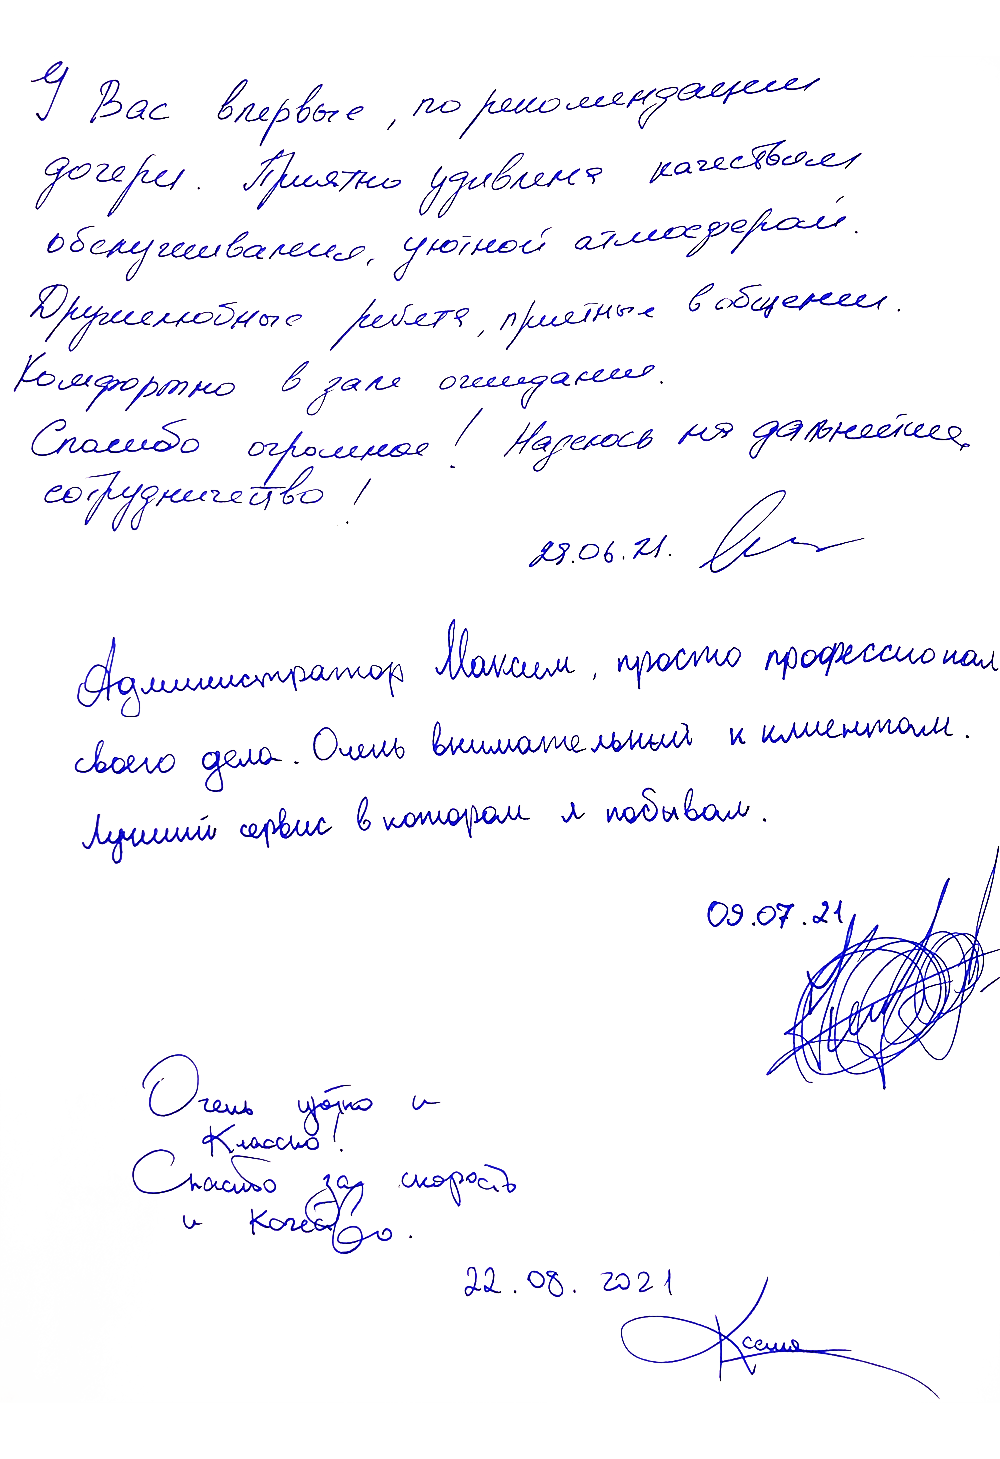 У Вас впервые, по рекомендации
дочери. Приятно удивлена качеством
обслуживания, уютной атмосферой.
Дружелюбные ребята, приятные в общении.
Комфортно в зале ожидания.
Спасибо огромное! Надеюсь на дальнейшее
сотрудничество!
29.06.21.
Администратор Максим, просто профессионал
своего дела. Очень внимательный к клиентам.
Лучший сервис в котором я побывал.
09.07.21
Очень уютно и
Классно!
Спасибо за скорость
и качество.
22.08.2021
Ксения